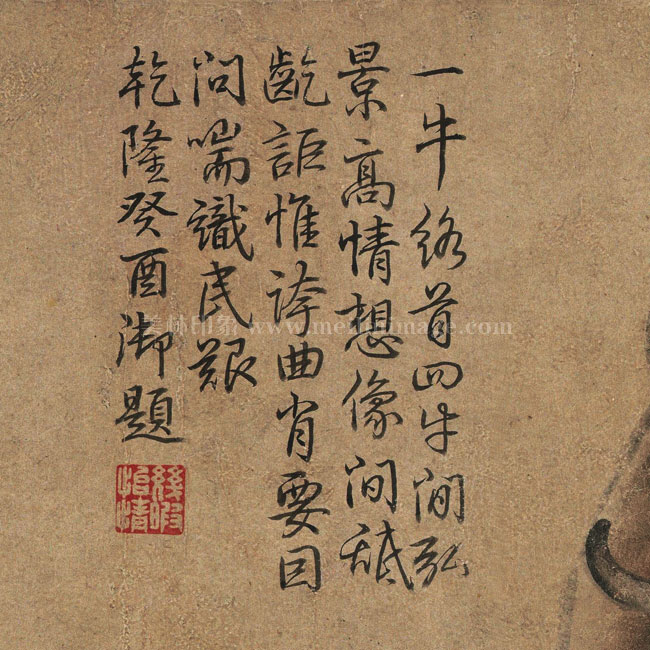 一牛絡首四牛閒弘
景高情想像間舐
齕詎惟誇曲肖要因
問喘識民艱
乾隆癸酉御題
幾暇
怡情
美林印象 www.meilinimage.com